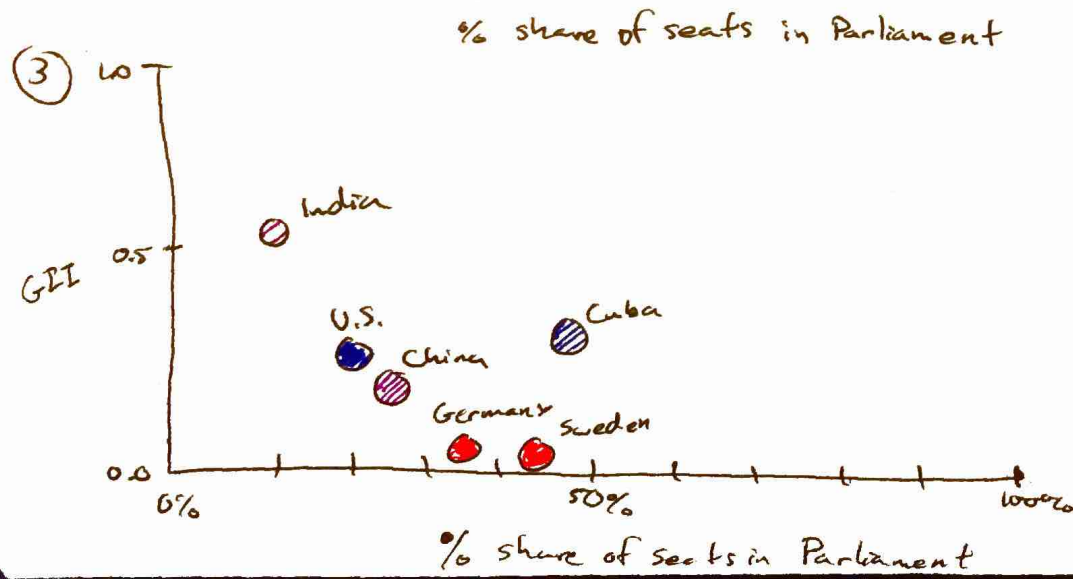 % share of seats in Parliament
3
1.0
India
0.5
GII
U.S.
Cuba
China
Germany
Sweden
0.0
0%
50%
100%
% share of seats in Parliament